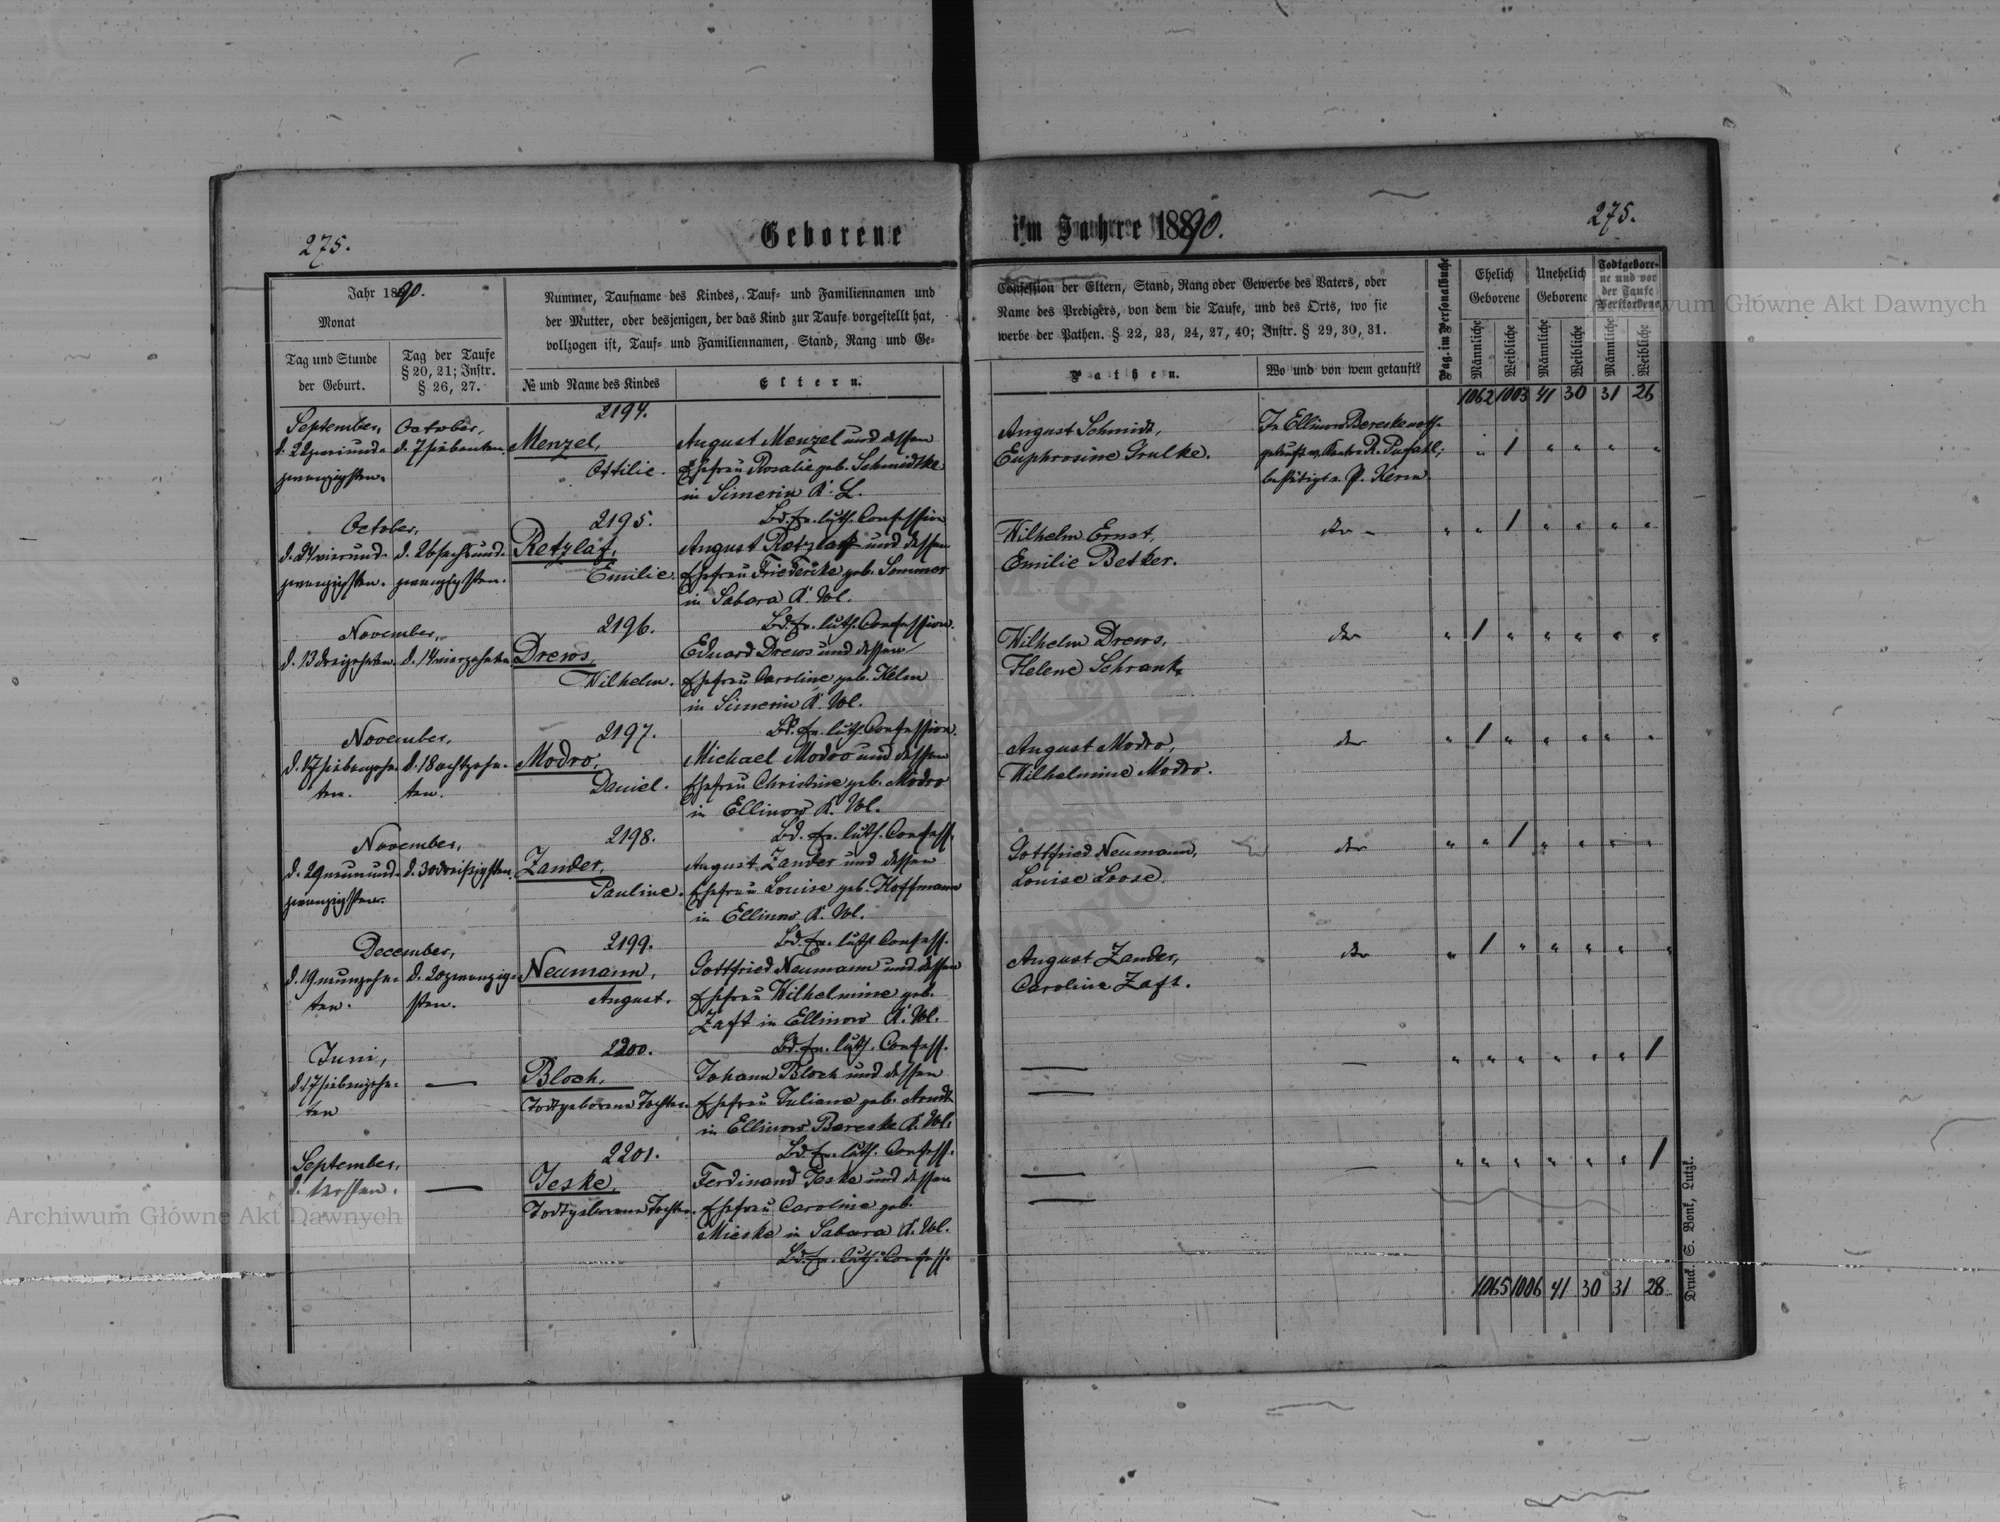 Geborene im Jahre 1890.
275.
275.
Jahr 1890.
Monat
Tag und Stunde der Geburt.
Tag der Taufe § 20, 21; Instr. § 26, 27.
Nummer, Taufname des Kindes, Tauf- und Familiennamen und
der Mutter, oder desjenigen, der das Kind zur Taufe vorgestellt hat,
vollzogen ist, Tauf- und Familiennamen, Stand, Rang und Ge-
№ und Name des Kindes
Eltern.
Confession der Eltern, Stand, Rang oder Gewerbe des Vaters, oder
Name des Predigers, von dem die Taufe, und des Orts, wo sie
werbe der Pathen. § 22, 23, 24, 27, 40; Instr. § 29, 30, 31.
Pathen.
Wo und von wem getauft?
Pag. im Personalbuche
Ehelich Geborene
Unehelich Geborene
Todtgebore-
ne und vor
der Taufe
Verstorbene
Männliche
Weibliche
Männliche
Weibliche
Männliche
Weibliche
1062 1003 41 30 31 26
September,
d. 22 zweiund-
zwanzigsten.
October,
d. 7 siebenten.
2194.
Menzel,
Ottilie.
August Menzel und dessen
Ehefrau Rosalie geb. Schmidtke
in Simerin K. L.
Bd. ev. luth. Confession
August Schmidt,
Euphrosine Grulke.
In Ellinow Bereske noth-
getauft v. Kantor R. Pufahl;
bestätigt v. P. Kern.
" 1 " " " "
October,
d. 24 vierund-
zwanzigsten.
d. 26 sechsund-
zwanzigsten.
2195.
Retzlaf,
Emilie.
August Retzlaff und dessen
Ehefrau Friedericke geb. Sommer
in Sabara K. Wl.
Bd. ev. luth. Confession.
Wilhelm Ernst,
Emilie Betker.
dto -
" " 1 " " " "
November,
d. 13 dreizehnten.
d. 14 vierzehnten
2196.
Drews,
Wilhelm.
Eduard Drews und dessen
Ehefrau Caroline geb. Kelm
in Simerin K. Wl.
Bd. ev. luth. Confession.
Wilhelm Drews,
Helene Schrank.
dto
" 1 " " " " "
November,
d. 17 siebenzehn-
ten.
d. 18 achtzehn-
ten.
2197.
Modro,
Daniel.
Michael Modro und dessen
Ehefrau Christine geb. Modro
in Ellinow K. Wl.
Bd. ev. luth. Confess.
August Modro,
Wilhelmine Modro.
dto
" 1 " " " " "
November,
d. 29 neunund-
zwanzigsten.
d. 30 dreißigsten.
2198.
Zander,
Pauline.
August Zander und dessen
Ehefrau Louise geb. Hoffmann
in Ellinow K. Wl.
Bd. ev. luth. Confess.
Gottfried Neumann,
Louise Loose.
dto
" " 1 " " " "
December,
d. 19 neunzehn-
ten.
d. 20 zwanzig-
sten.
2199.
Neumann,
August.
Gottfried Neumann und dessen
Ehefrau Wilhelmine geb.
Zaft in Ellinow K. Wl.
Bd. ev. luth. Confess.
August Zander,
Caroline Zaft.
dto
" 1 " " " " "
Juni,
d. 17 siebenzehn-
ten
2200.
Bloch,
Todtgeborene Tochter.
Johann Bloch und dessen
Ehefrau Juliane geb. Arndt
in Ellinow Bereske K. Wl.
Bd. ev. luth. Confess.
" " " " " " 1
September,
d. 1 ersten.
2201.
Jeske,
Todtgeborene Tochter.
Ferdinand Jeske und dessen
Ehefrau Caroline geb.
Mieske in Sabara K. Wl.
Bd. ev. luth. Confess.
" " " " " " 1
1065 1006 41 30 31 28
Druck. S. Bonk, Lutzk.
Archiwum Główne Akt Dawnych
Archiwum Główne Akt Dawnych